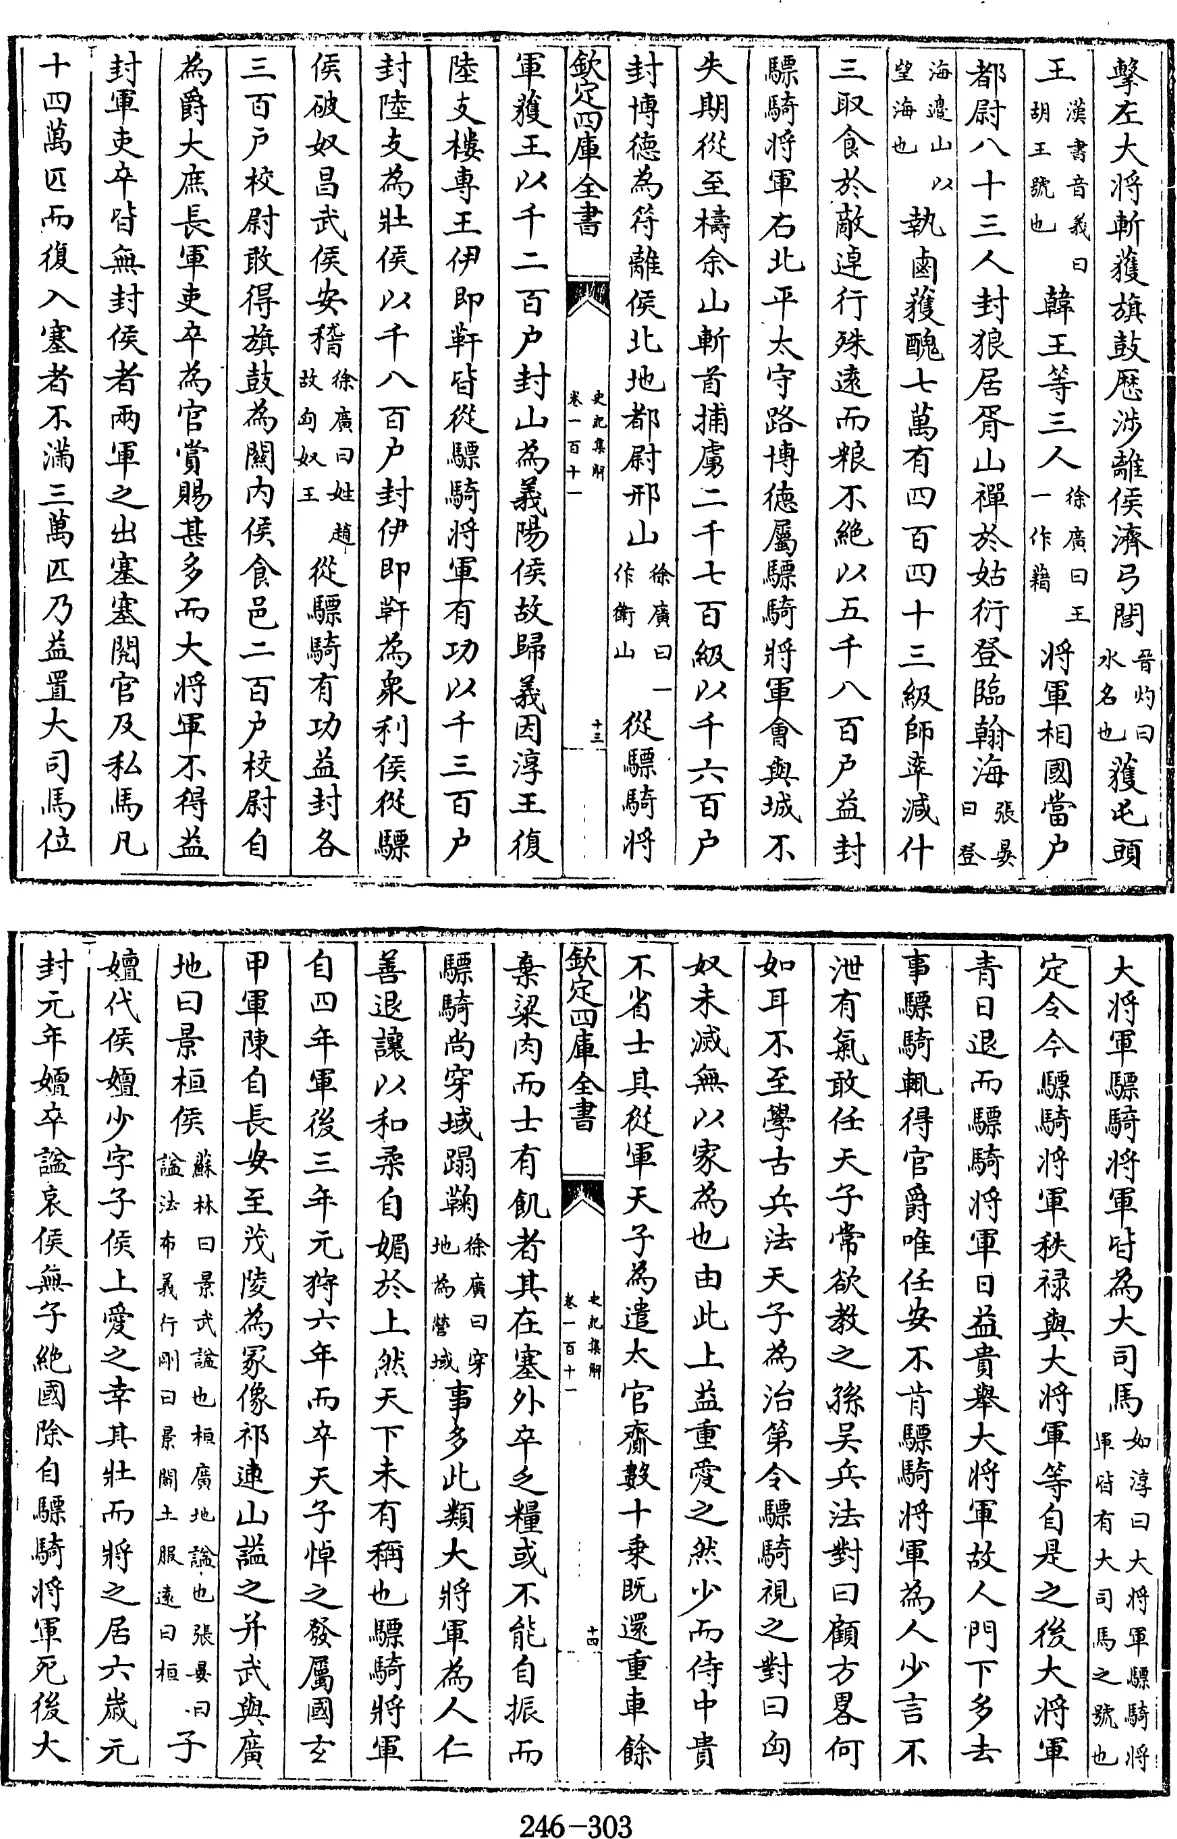 擊左大將斬獲旗鼓歴涉離侯濟弓閭晉灼曰水名也獲屯頭
王漢書音義曰胡王號也韓王等三人徐廣曰王一作藉將軍相國當户
都尉八十三人封狼居胥山禪於姑衍登臨翰海張晏曰登
海邉山以望海也執鹵獲醜七萬有四百四十三級師率減什
三取食於敵逴行殊遠而粮不絶以五千八百户益封
驃騎將軍右北平太守路博德屬驃騎將軍㑹與城不
失期從至檮余山斬首捕虜二千七百級以千六百户
封博德為符離侯北地都尉邢山徐廣曰一作衛山從驃騎將
欽定四庫全書
史記集解
卷一百十一
十三
軍獲王以千二百户封山為義陽侯故歸義因淳王復
陸支樓專王伊即靬皆從驃騎將軍有功以千三百户
封陸支為壯侯以千八百户封伊即靬為衆利侯從驃
侯破奴昌武侯安稽徐廣曰姓趙故匈奴王從驃騎有功益封各
三百户校尉敢得旗鼓為闗内侯食邑二百户校尉自
為爵大庶長軍吏卒為官賞賜甚多而大將軍不得益
封軍吏卒皆無封侯者兩軍之出塞塞閲官及私馬凡
十四萬匹而復入塞者不滿三萬匹乃益置大司馬位
大將軍驃騎將軍皆為大司馬如淳曰大將軍驃騎將軍皆有大司馬之號也
定令令驃騎將軍秩禄與大將軍等自是之後大將軍
青日退而驃騎將軍日益貴舉大將軍故人門下多去
事驃騎輒得官爵唯任安不肯驃騎將軍為人少言不
泄有氣敢任天子常欲教之孫吴兵法對曰顧方畧何
如耳不至學古兵法天子為治第令驃騎視之對曰匈
奴未滅無以家為也由此上益重愛之然少而侍中貴
不省士其從軍天子為遣太官齎數十乗既還重車餘
欽定四庫全書
史記集解
卷一百十一
十四
棄粱肉而士有飢者其在塞外卒乏糧或不能自振而
驃騎尚穿域蹋鞠徐廣曰穿地為營域事多此類大將軍為人仁
善退讓以和柔自媚於上然天下未有稱也驃騎將軍
自四年軍後三年元狩六年而卒天子悼之發屬國玄
甲軍陳自長安至茂陵為冢像祁連山諡之并武與廣
地曰景桓侯蘇林曰景武諡也桓廣地諡也張晏曰諡法布義行剛曰景闢土服遠曰桓子
嬗代侯嬗少字子侯上愛之幸其壯而將之居六歳元
封元年嬗卒諡哀侯無子絶國除自驃騎將軍死後大
246-303